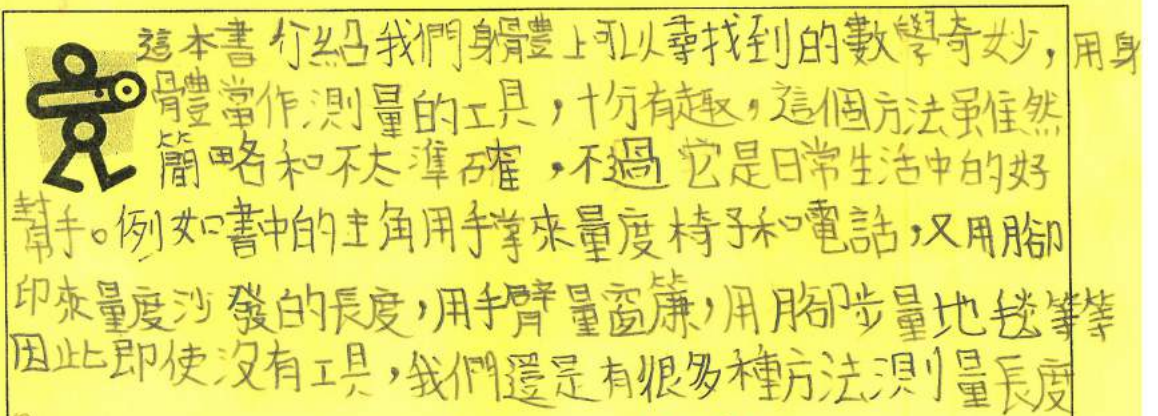 這本書介紹我們身體上可以尋找到的數學奇妙，用身
體當作測量的工具，十分有趣，這個方法雖然
簡略和不太準確，不過它是日常生活中的好
幫手。例如書中的主角用手掌來量度椅子和電話，又用腳
印來量度沙發的長度，用手臂量窗簾，用腳步量地毯等等
因此即使沒有工具，我們還是有很多種方法測量長度